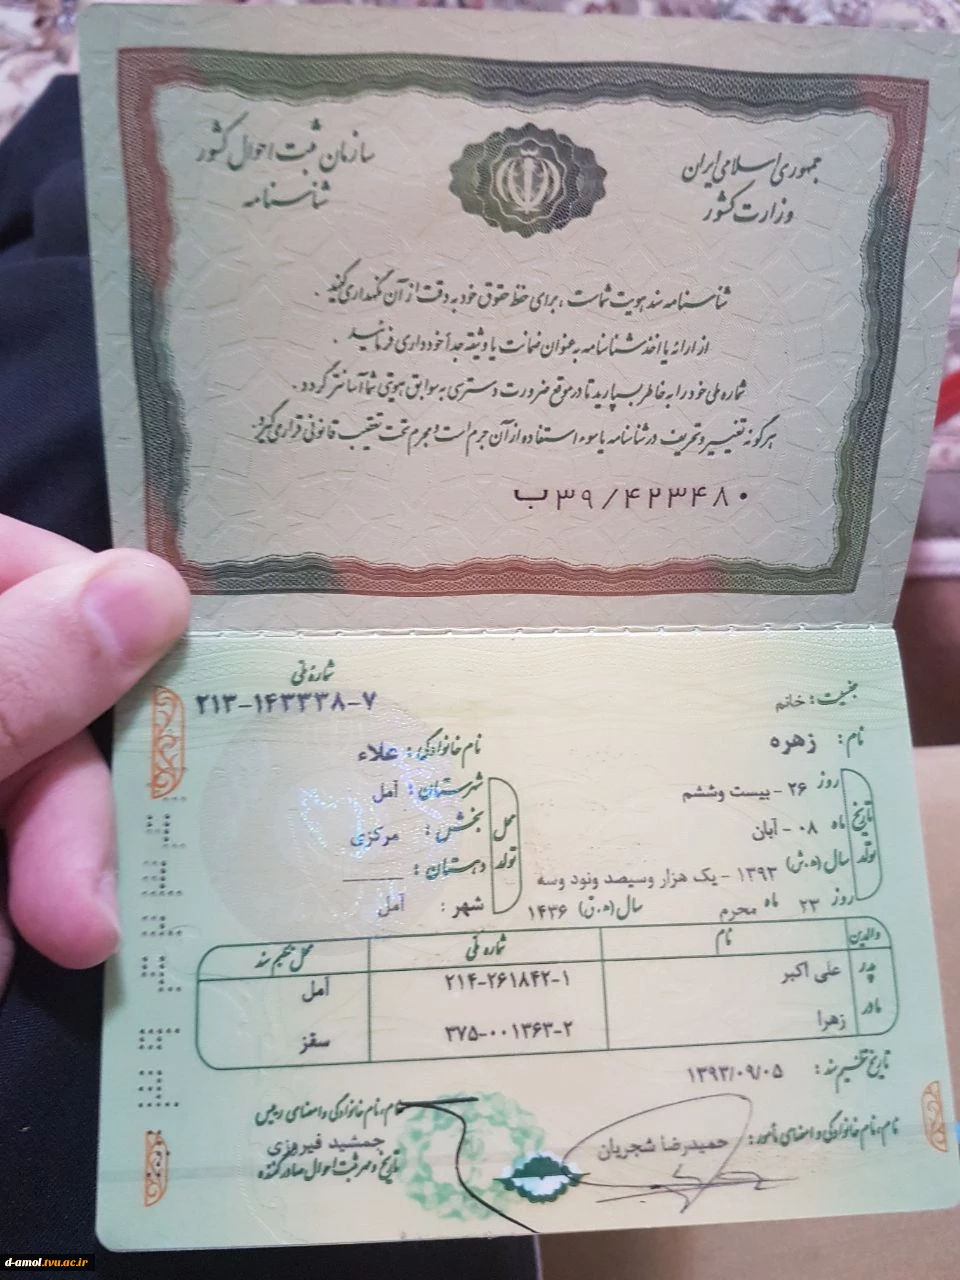 جمهوری اسلامی ایران
وزارت کشور
سازمان ثبت احوال کشور
شناسنامه
شناسنامه سند هویت شماست ، برای حفظ حقوق خود به دقت از آن نگهداری کنید .
از ارائه یا اخذ شناسنامه به عنوان ضمانت یا وثیقه جداً خودداری فرمائید .
شماره ملی خود را به خاطر بسپارید تا در موقع ضرورت دسترسی به سوابق هویتی شما آسانتر گردد .
هر گونه تغییر و تحریف در شناسنامه یا سوء استفاده از آن جرم است و مجرم تحت تعقیب قانونی قرار می گیرد.
ب۳۹/۴۲۳۴۸۰
شماره ملی
۲۱۳-۱۴۳۳۳۸-۷
جنسیت : خانم
نام : زهره
نام خانوادگی : علاء
تاریخ تولد
روز ۲۶ - بیست وششم
ماه ۰۸ - آبان
سال (ه.ش) ۱۳۹۳ - یک هزار وسیصد ونود وسه
روز ۲۳ ماه محرم سال (ه.ق) ۱۴۳۶
محل تولد
شهرستان : آمل
بخش : مرکزی
دهستان : ـــــــ
شهر : آمل
والدین نام شماره ملی محل تنظیم سند
پدر علی اکبر ۲۱۴-۲۶۱۸۴۲-۱ آمل
مادر زهرا ۳۷۵-۰۰۱۳۶۳-۲ سقز
تاریخ تنظیم سند : ۱۳۹۳/۰۹/۰۵
نام، نام خانوادگی و امضای مأمور : حمیدرضا شجریان
نام، نام خانوادگی و امضای رییس
جمشید فیروزی
تاریخ و مهر ثبت احوال صادر کننده
d-amol.tvu.ac.ir